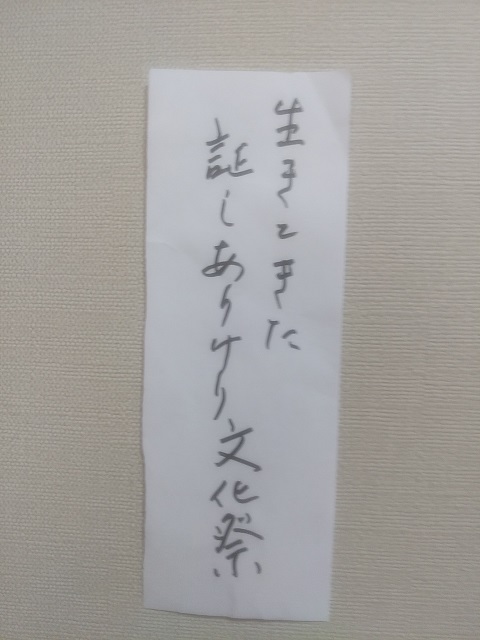 生きてきた
証しありけり文化祭